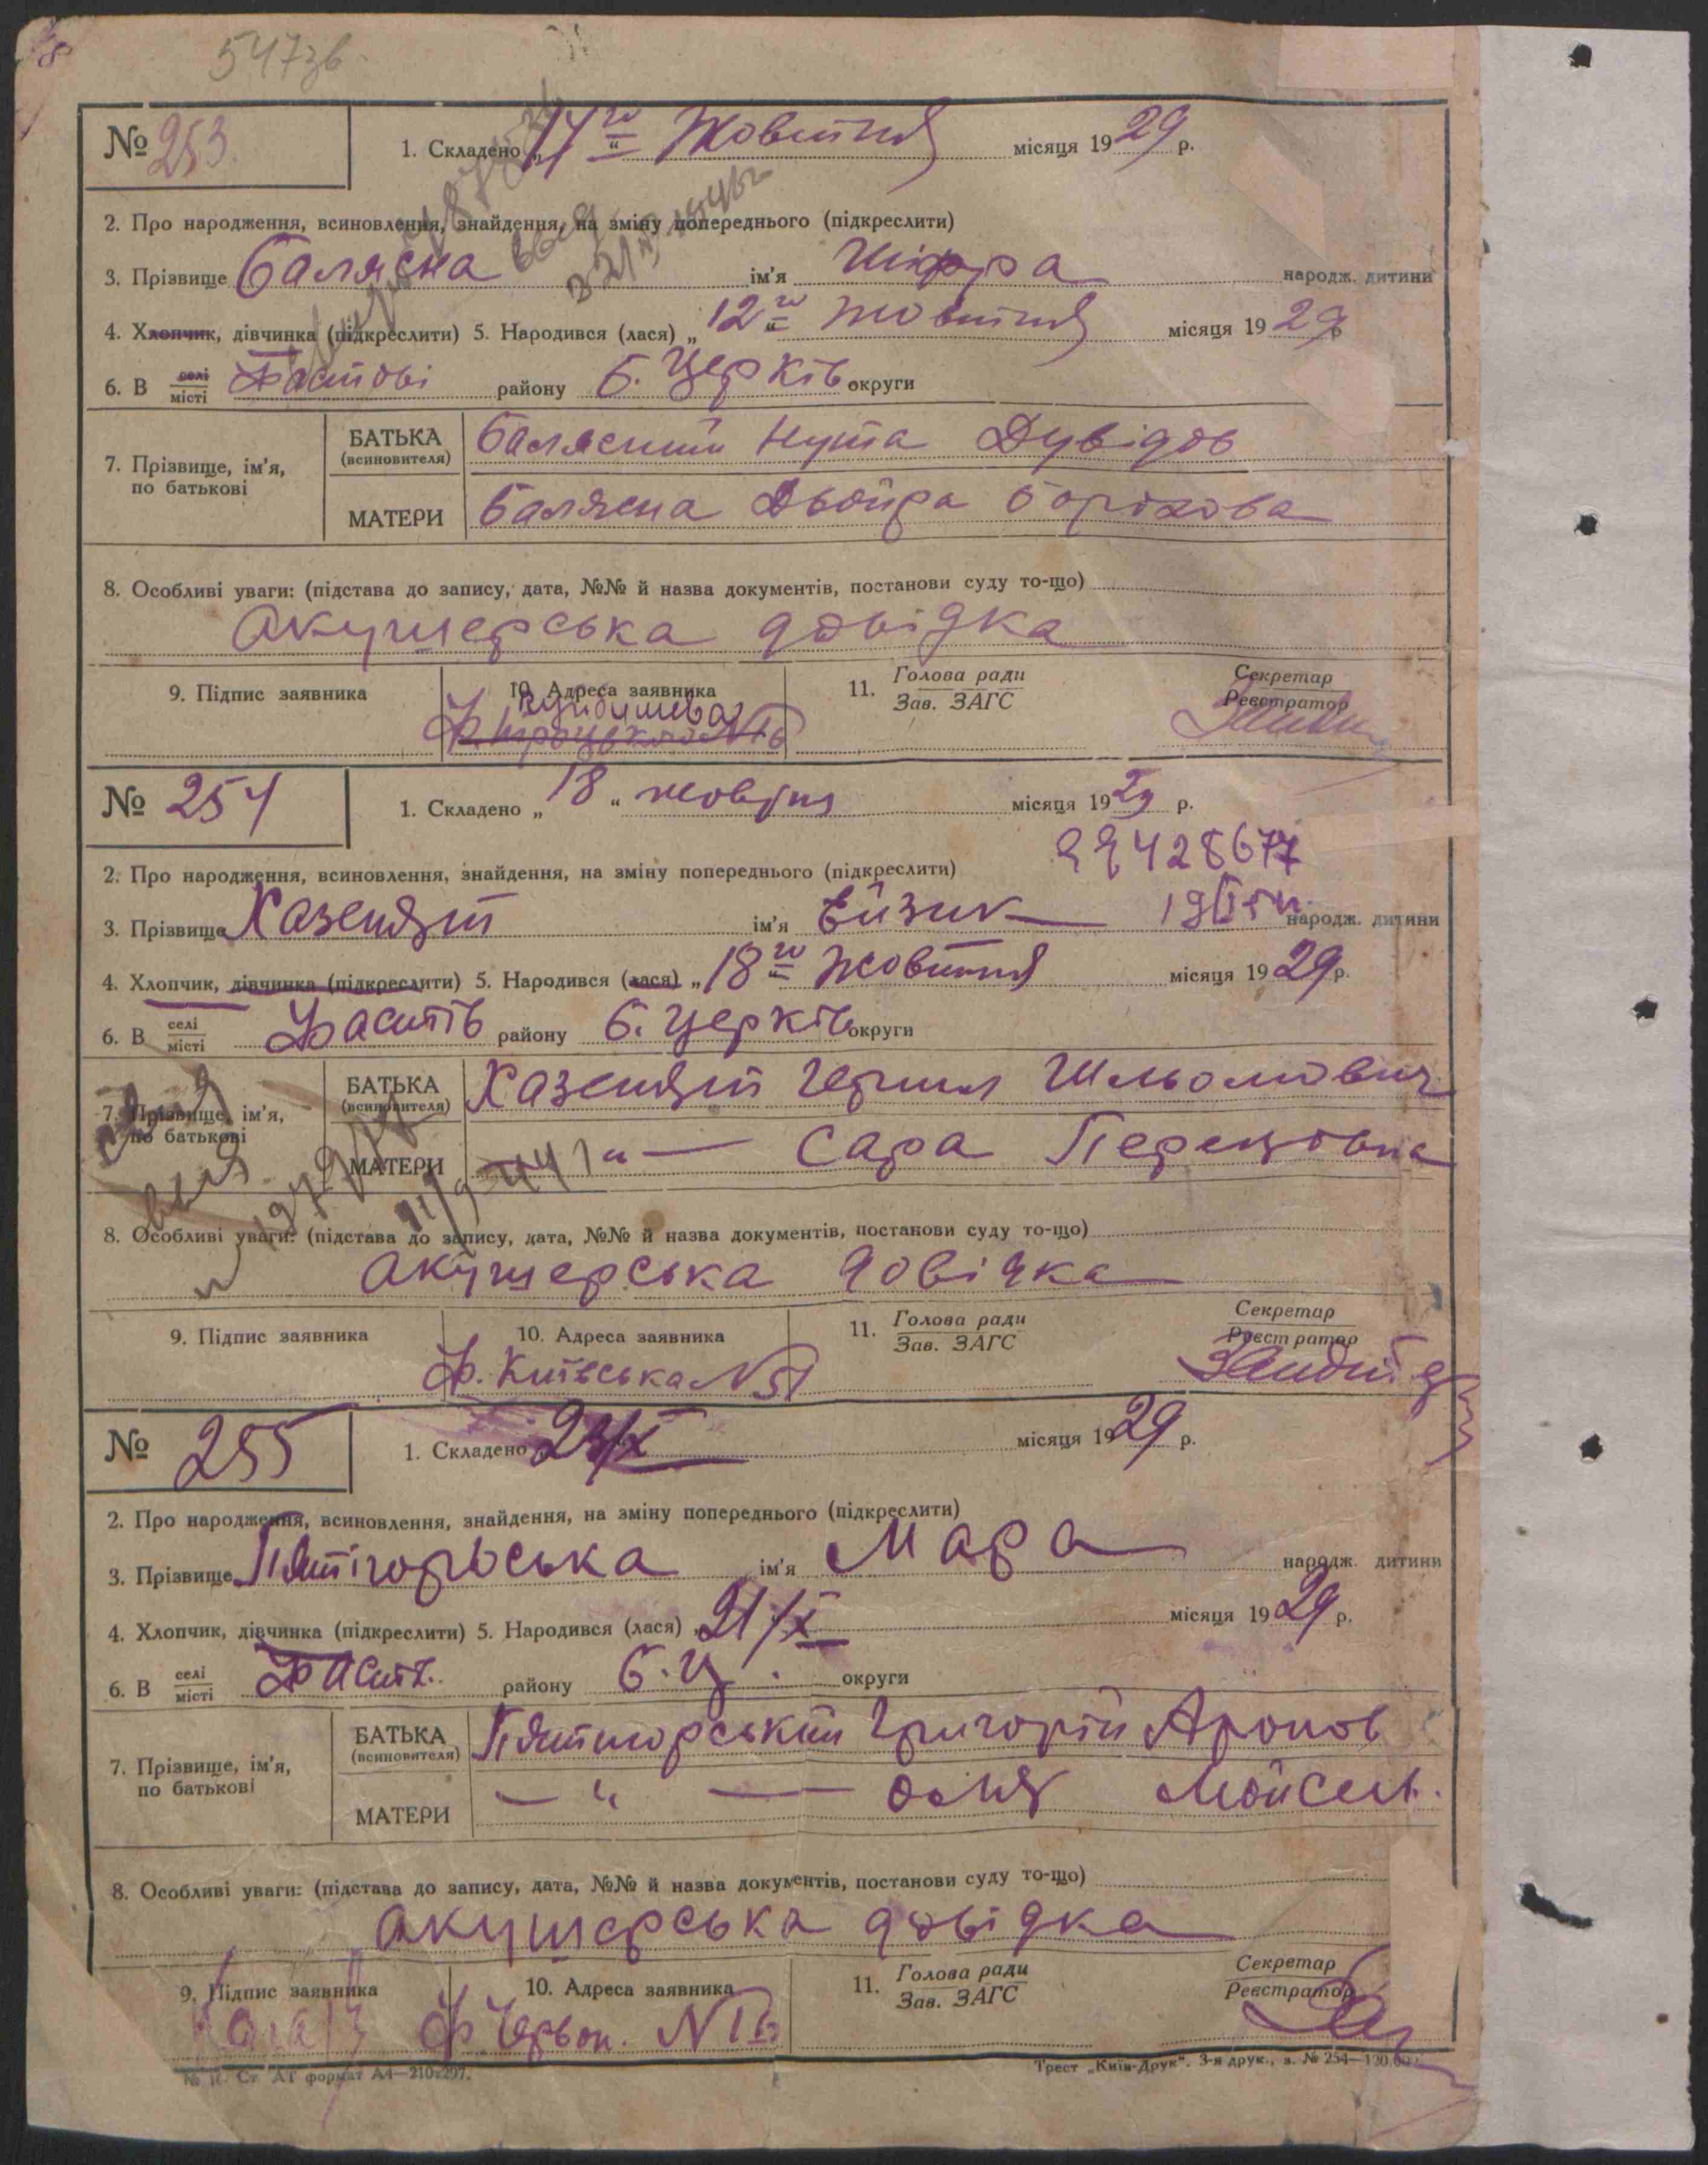 547зв.
№ 253. 1. Складено „17го“ Жовтня місяця 1929 р.
2. Про народження, всиновлення, знайдення, на зміну попереднього (підкреслити)
3. Прізвище Балясна ім'я Шифра народж. дитини
4. Хлопчик, дівчинка (підкреслити) 5. Народився (лася) „12го“ жовтня місяця 1929 р.
6. В селі місті Фастові району Б. Церків округи
7. Прізвище, ім'я, по батькові
БАТЬКА (всиновителя) Балясний Нута Дувідов
МАТЕРИ Балясна Двойра Борохова
8. Особливі уваги: (підстава до запису, дата, №№ й назва документів, постанови суду то-що)
Акушерська довідка
9. Підпис заявника 10. Адреса заявника 11. Голова ради Зав. ЗАГС Секретар Реєстратор
№ 254 1. Складено „18“ жовтня місяця 1929 р.
2. Про народження, всиновлення, знайдення, на зміну попереднього (підкреслити)
3. Прізвище Хазенязт ім'я Ейзик народж. дитини
4. Хлопчик, дівчинка (підкреслити) 5. Народився (лася) „18го“ жовтня місяця 1929 р.
6. В селі місті Фастів району Б. Церків округи
7. Прізвище, ім'я, по батькові
БАТЬКА (всиновителя) Хазенязт Гершл Шльомович
МАТЕРИ —„— Сара Перецовна
8. Особливі уваги: (підстава до запису, дата, №№ й назва документів, постанови суду то-що)
Акушерська довідка
9. Підпис заявника 10. Адреса заявника 11. Голова ради Зав. ЗАГС Секретар Реєстратор
Ф. Київська № 51
№ 255 1. Складено 23/X місяця 1929 р.
2. Про народження, всиновлення, знайдення, на зміну попереднього (підкреслити)
3. Прізвище Пятігорська ім'я Мара народж. дитини
4. Хлопчик, дівчинка (підкреслити) 5. Народився (лася) „21/X місяця 1929 р.
6. В селі місті Фаст. району Б. Ц. округи
7. Прізвище, ім'я, по батькові
БАТЬКА (всиновителя) Пятигорський Григорій Аронов
МАТЕРИ —„— Моисеев.
8. Особливі уваги: (підстава до запису, дата, №№ й назва документів, постанови суду то-що)
Акушерська довідка
9. Підпис заявника 10. Адреса заявника 11. Голова ради Зав. ЗАГС Секретар Реєстратор
Ф. Червон. №
Ст АТ формат А4—210×297.
Трест „Київ-Друк“. 3-я друк., з. № 254—120.000